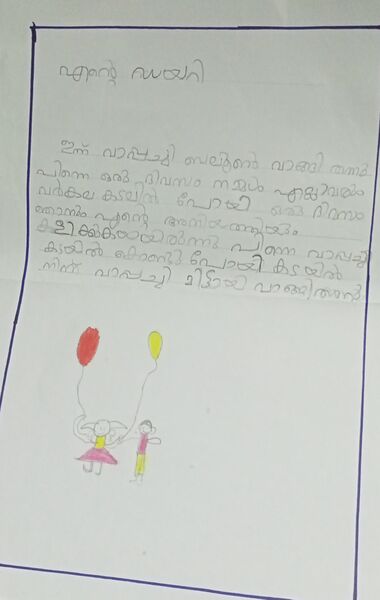 എന്റെ ഡയറി
ഇന്ന് വാപ്പച്ചി ബലൂൺ വാങ്ങി തന്നു
പിന്നെ ഒരു ദിവസം നമ്മൾ എല്ലാവരും
വർകല കടലിൽ പോയി ഒരു ദിവസം
ഞാനും എന്റെ അനിയത്തിയും
കളിക്കുകയായിരുന്നു പിന്നെ വാപ്പച്ചി
കടയിൽ കൊണ്ടു പോയി കടയിൽ
നിന്ന് വാപ്പച്ചി മിട്ടായി വാങ്ങിതന്നു